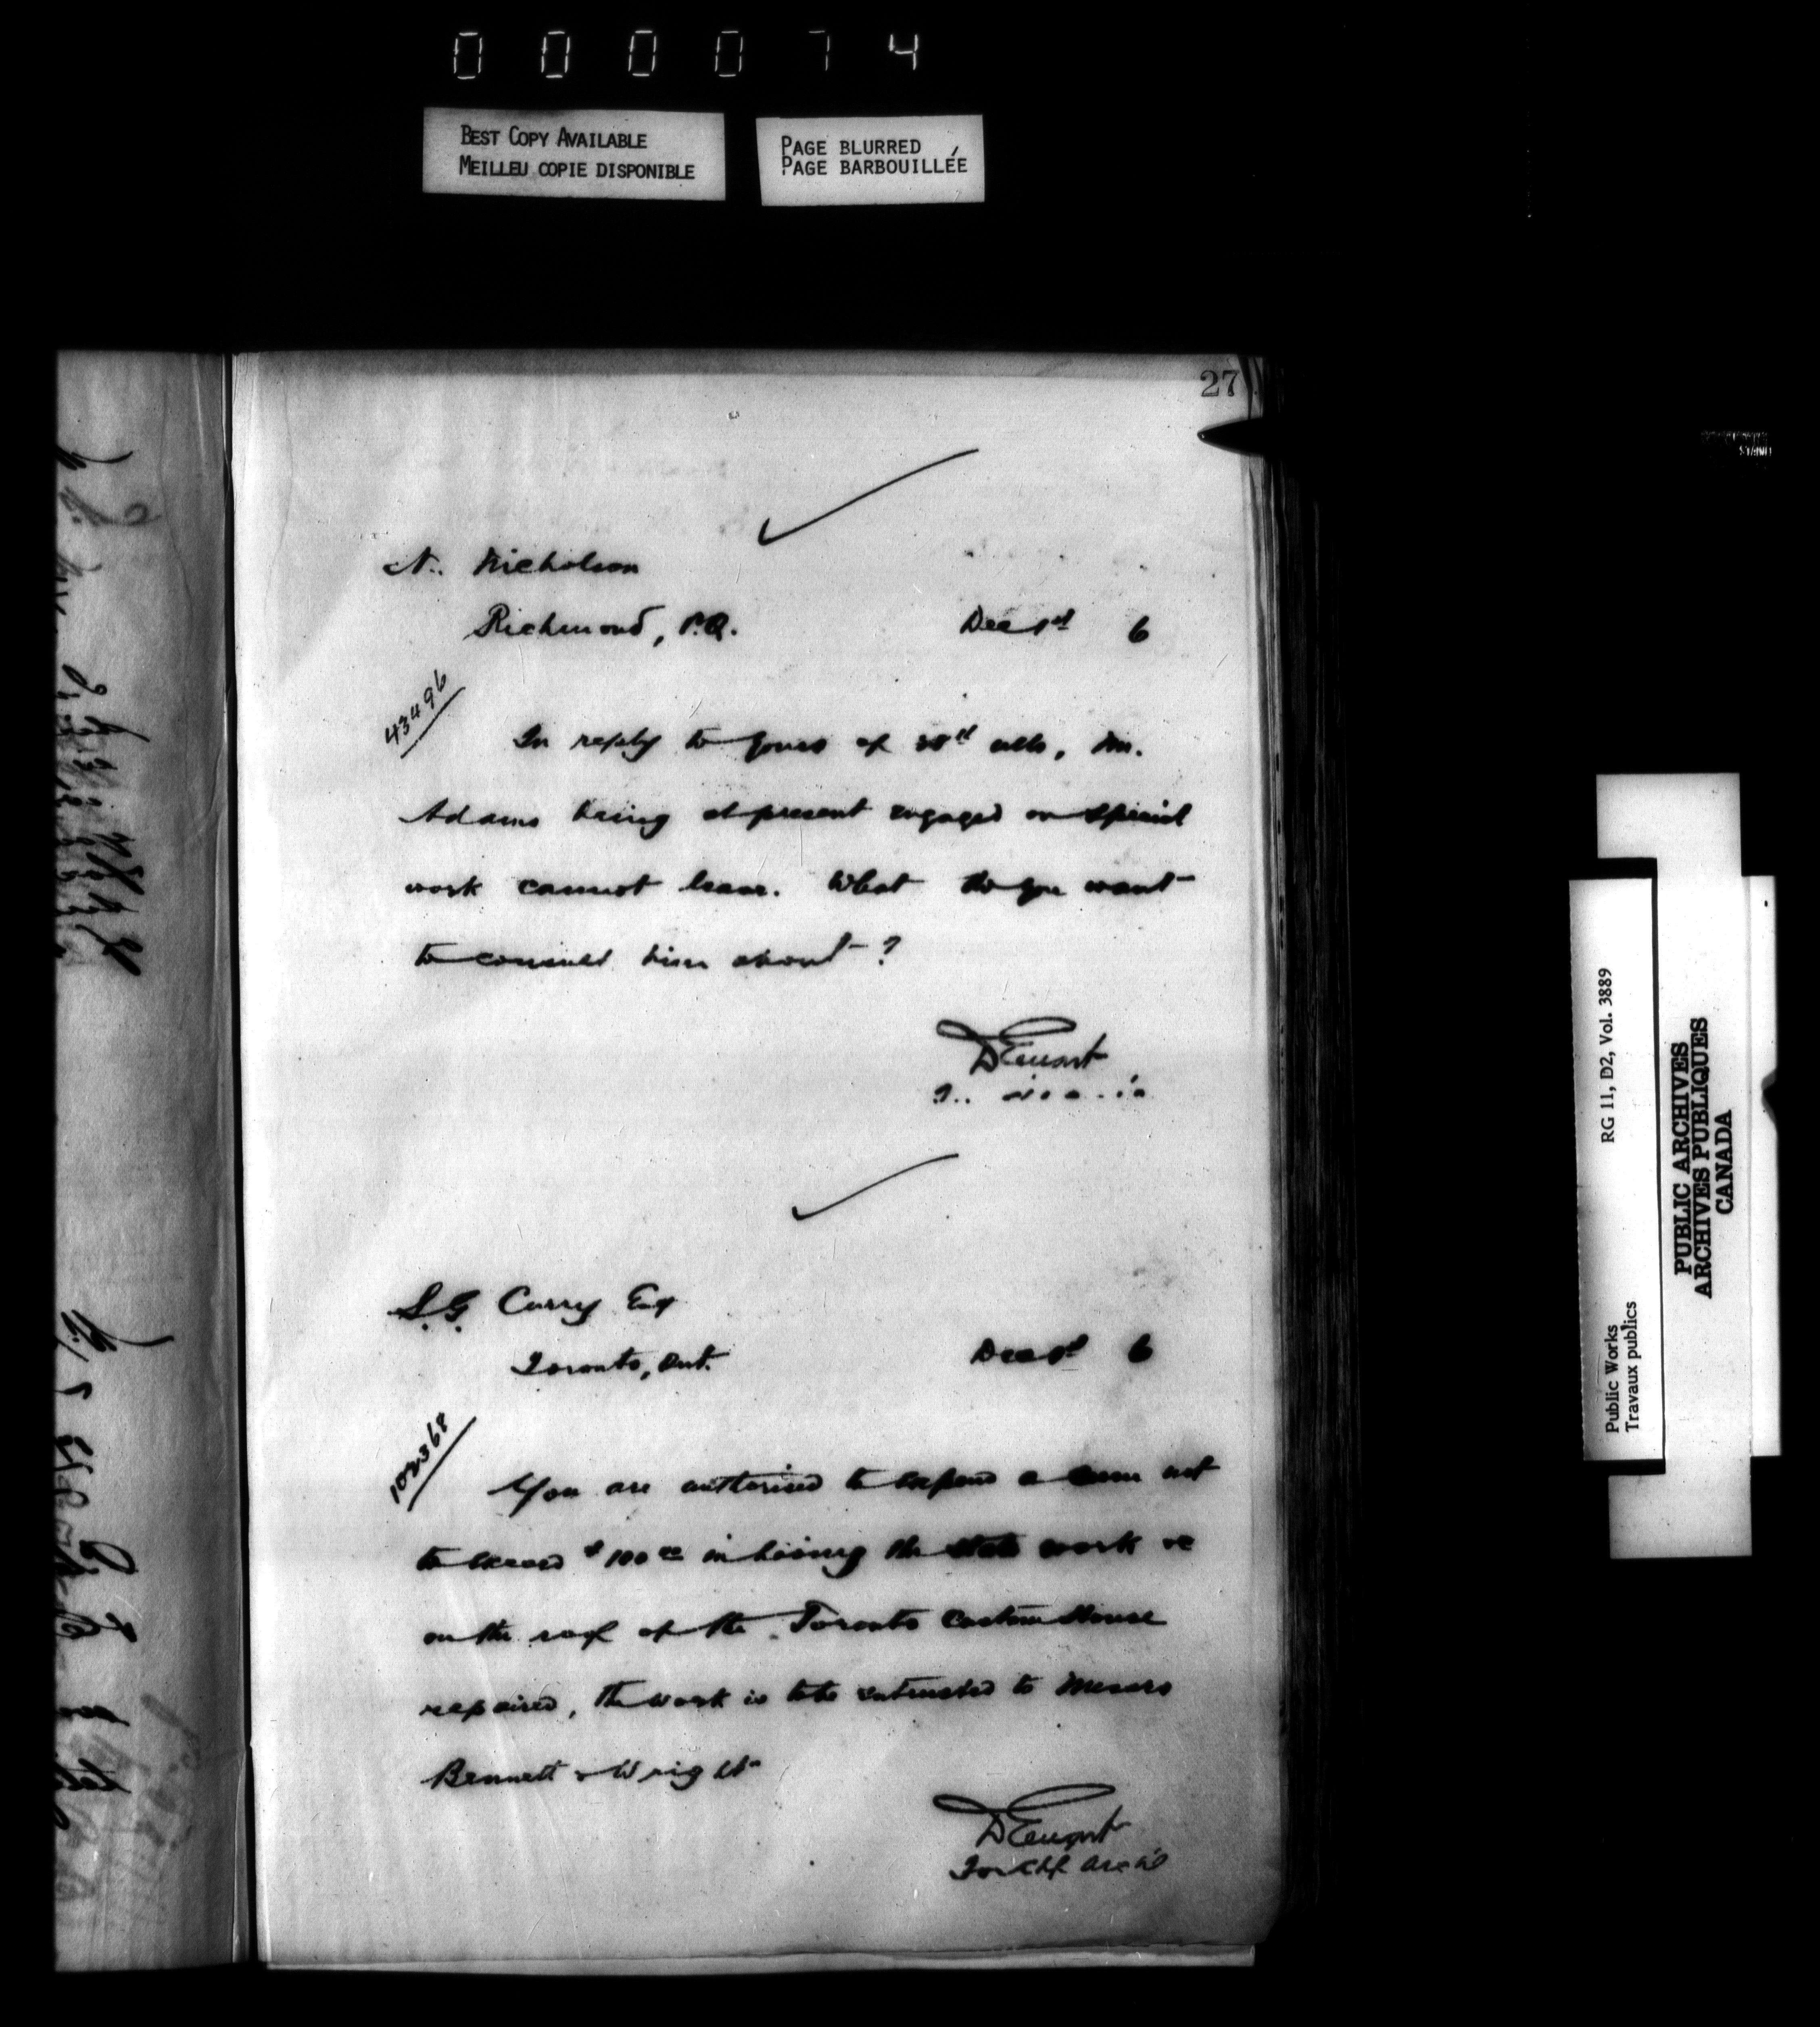 000074
BEST COPY AVAILABLE
MEILLEU COPIE DISPONIBLE
PAGE BLURRED
PAGE BARBOUILLÉE
27
N. Nicholson
Richmond, P.Q.
Dec 1st 6
43496
In reply to yours of ulto, Mr.
Adams being at present engaged on special
work cannot leave. What do you want
to consult him about?
D Ewart
S.G. Curry Esq
Toronto, Ont.
Dec 1st 6
102368
You are authorised to expend a sum not
to exceed $100 00 in having the slate work &c
on the roof of the Toronto Custom House
repaired, the work is to be entrusted to Messrs
Bennett & Wright
D Ewart
For Chf Arch't
Public Works
Travaux publics
RG 11, D2, Vol. 3889
PUBLIC ARCHIVES
ARCHIVES PUBLIQUES
CANADA